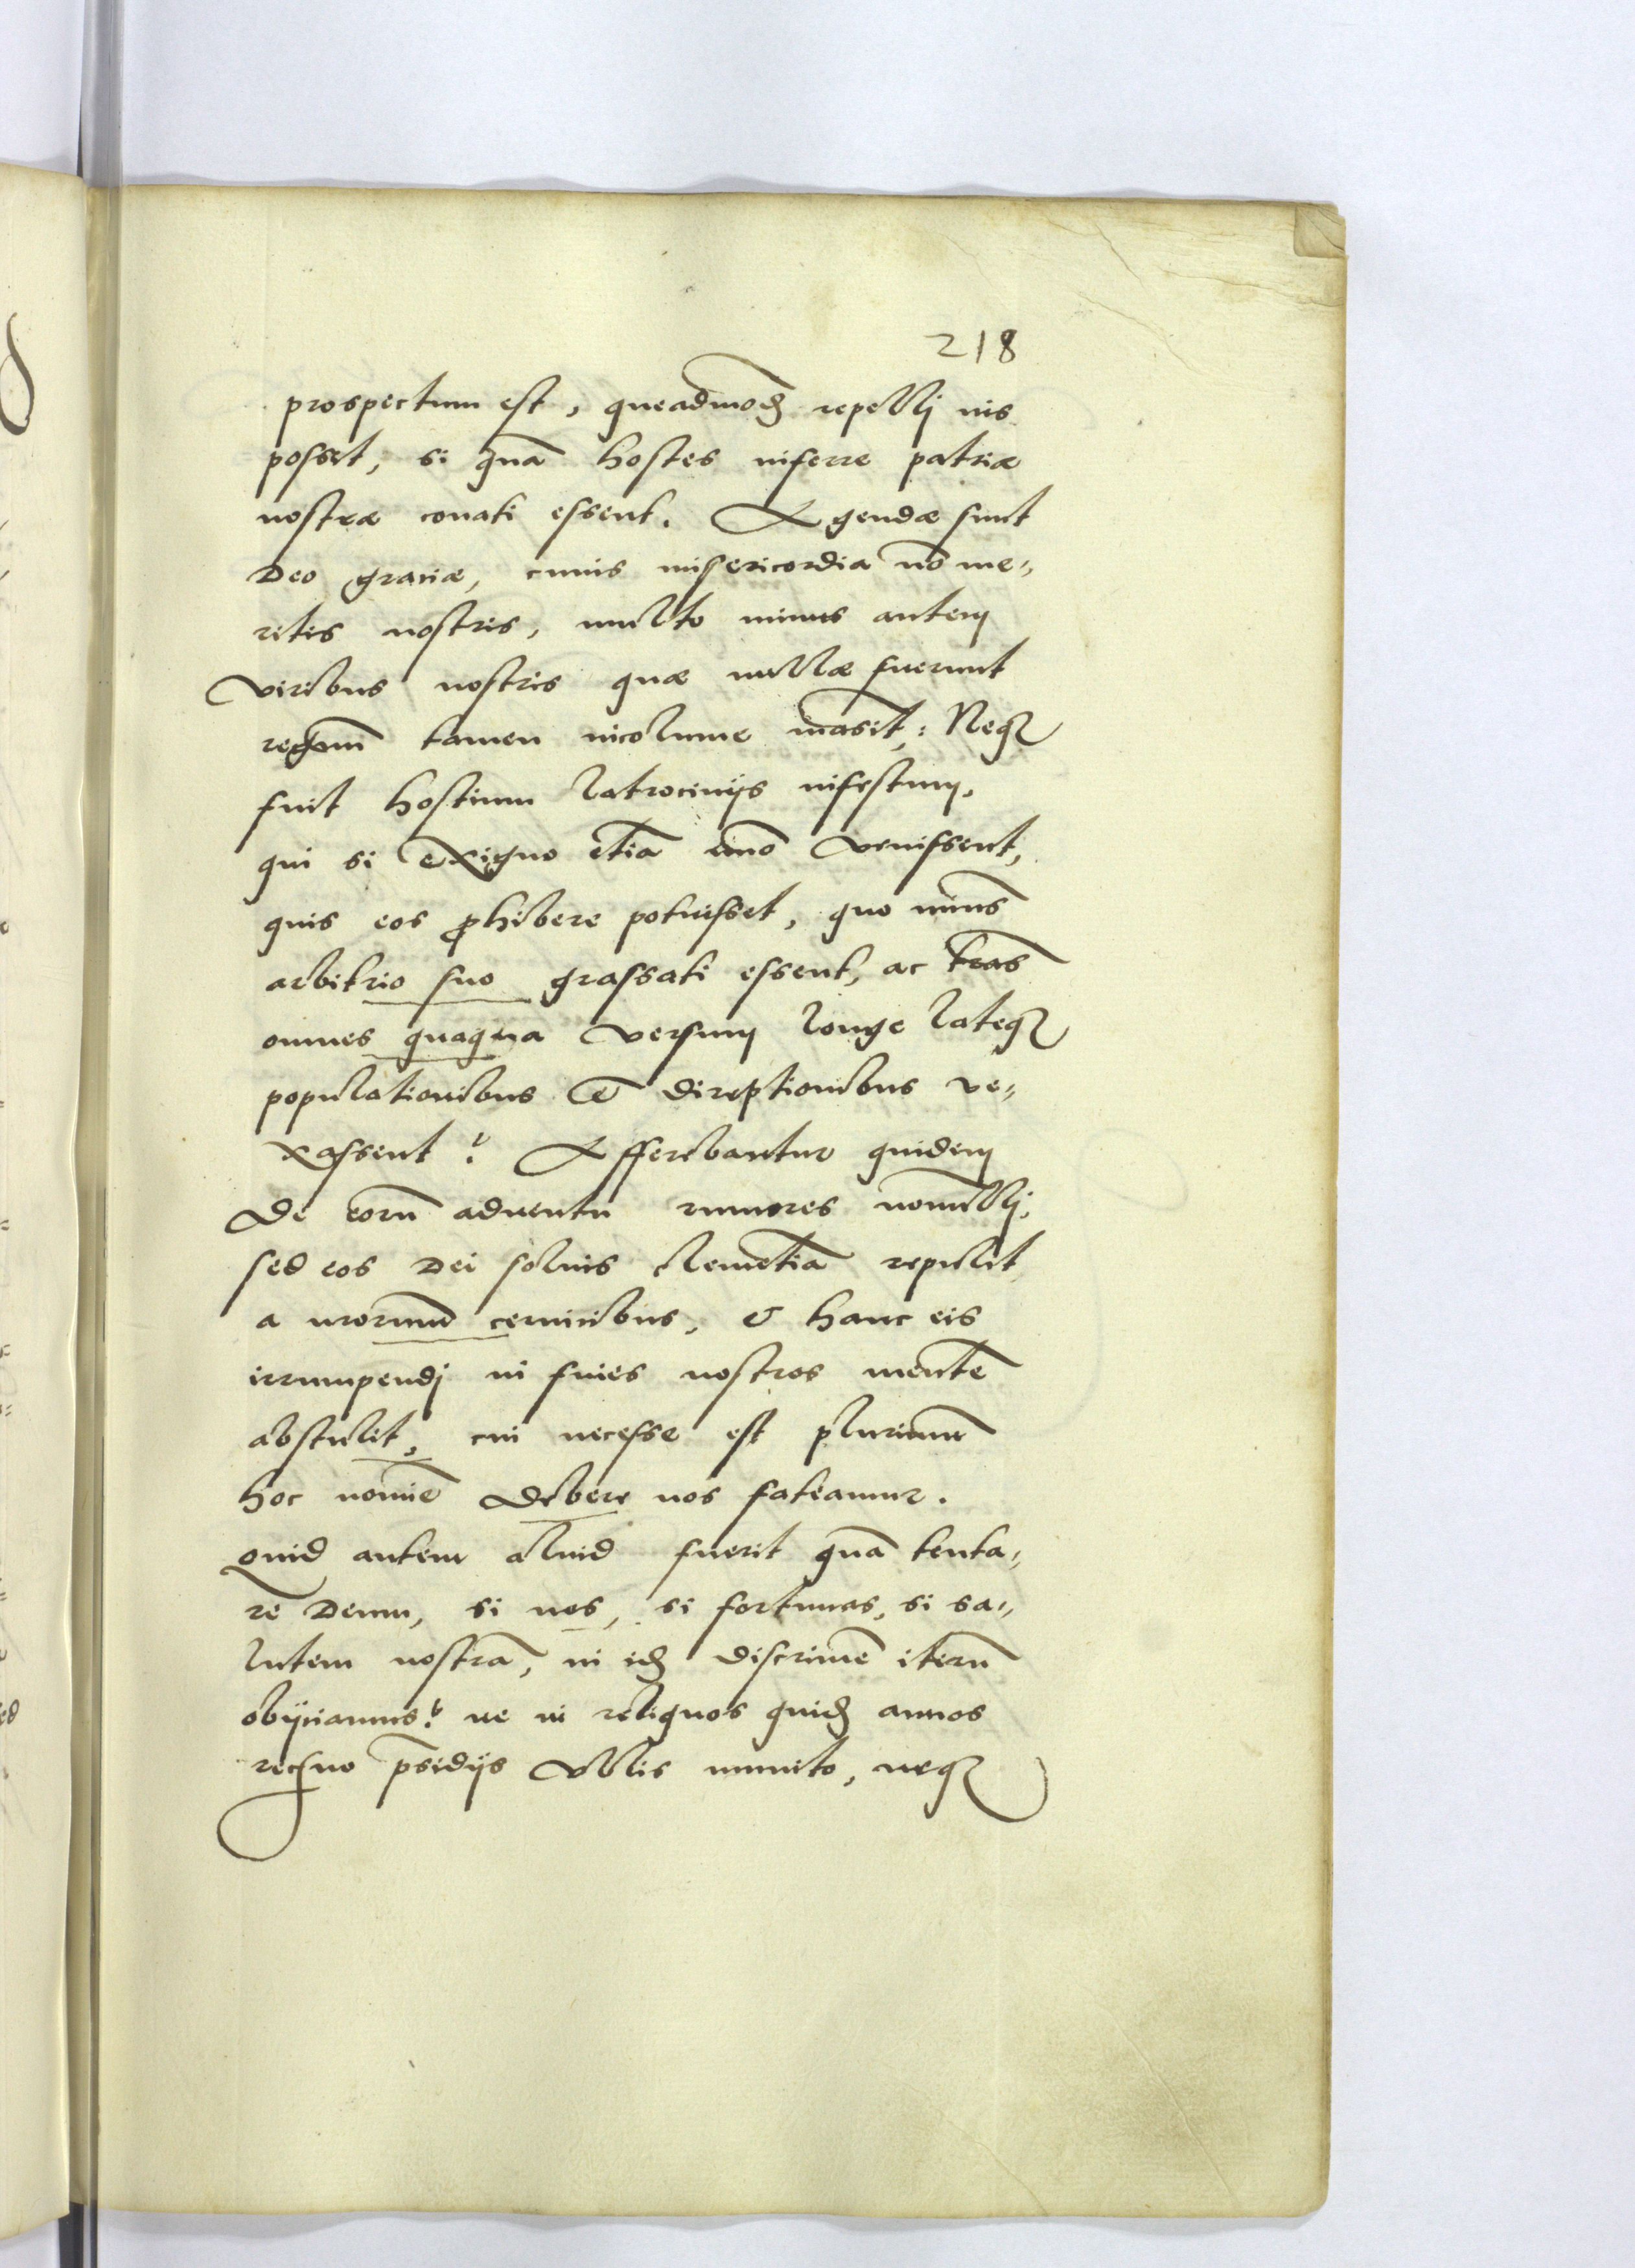 218
prospectum est, queadmoδ repellj vis
posset, si quā hostes inferre patriæ
nostræ conati essent. Agendæ sunt
Deo graciæ, cuius misericordia nō me„
ritis nostris, multo minus autem
viribus nostris quæ nullæ fuerunt
regnum tamen incolume māsit: Neqȝ
fuit hostium latrocinijs infestum,
qui si exiguo etiā nūo venissent,
quis eos ꝓhibere potuisset, quo minus
arbitrio suo grassati essent, ac tr̄as
omnes quaqua versum longe lateqȝ
populationibus & direptionibus ve„
xassent? Afferebantur quidem
de eorū aduentu rumores nonnullj,
sed eos Dei solius clemētia repulit
a nr̄orum ceruicibus, & hanc eis
irrumpendj in fines nostros mentē
abstulit, cui necesse est plurimum
hoc nomīe debere nos fateamur.
Quid autem aliud fuerit quā tenta„
re Deum, si nos, si fortunas, si sa„
lutem nostrā, in idē discrimē iterū
obijciamus? ne in reliquos quidē annos
regno p̄sidijs vllis munito, neqȝ